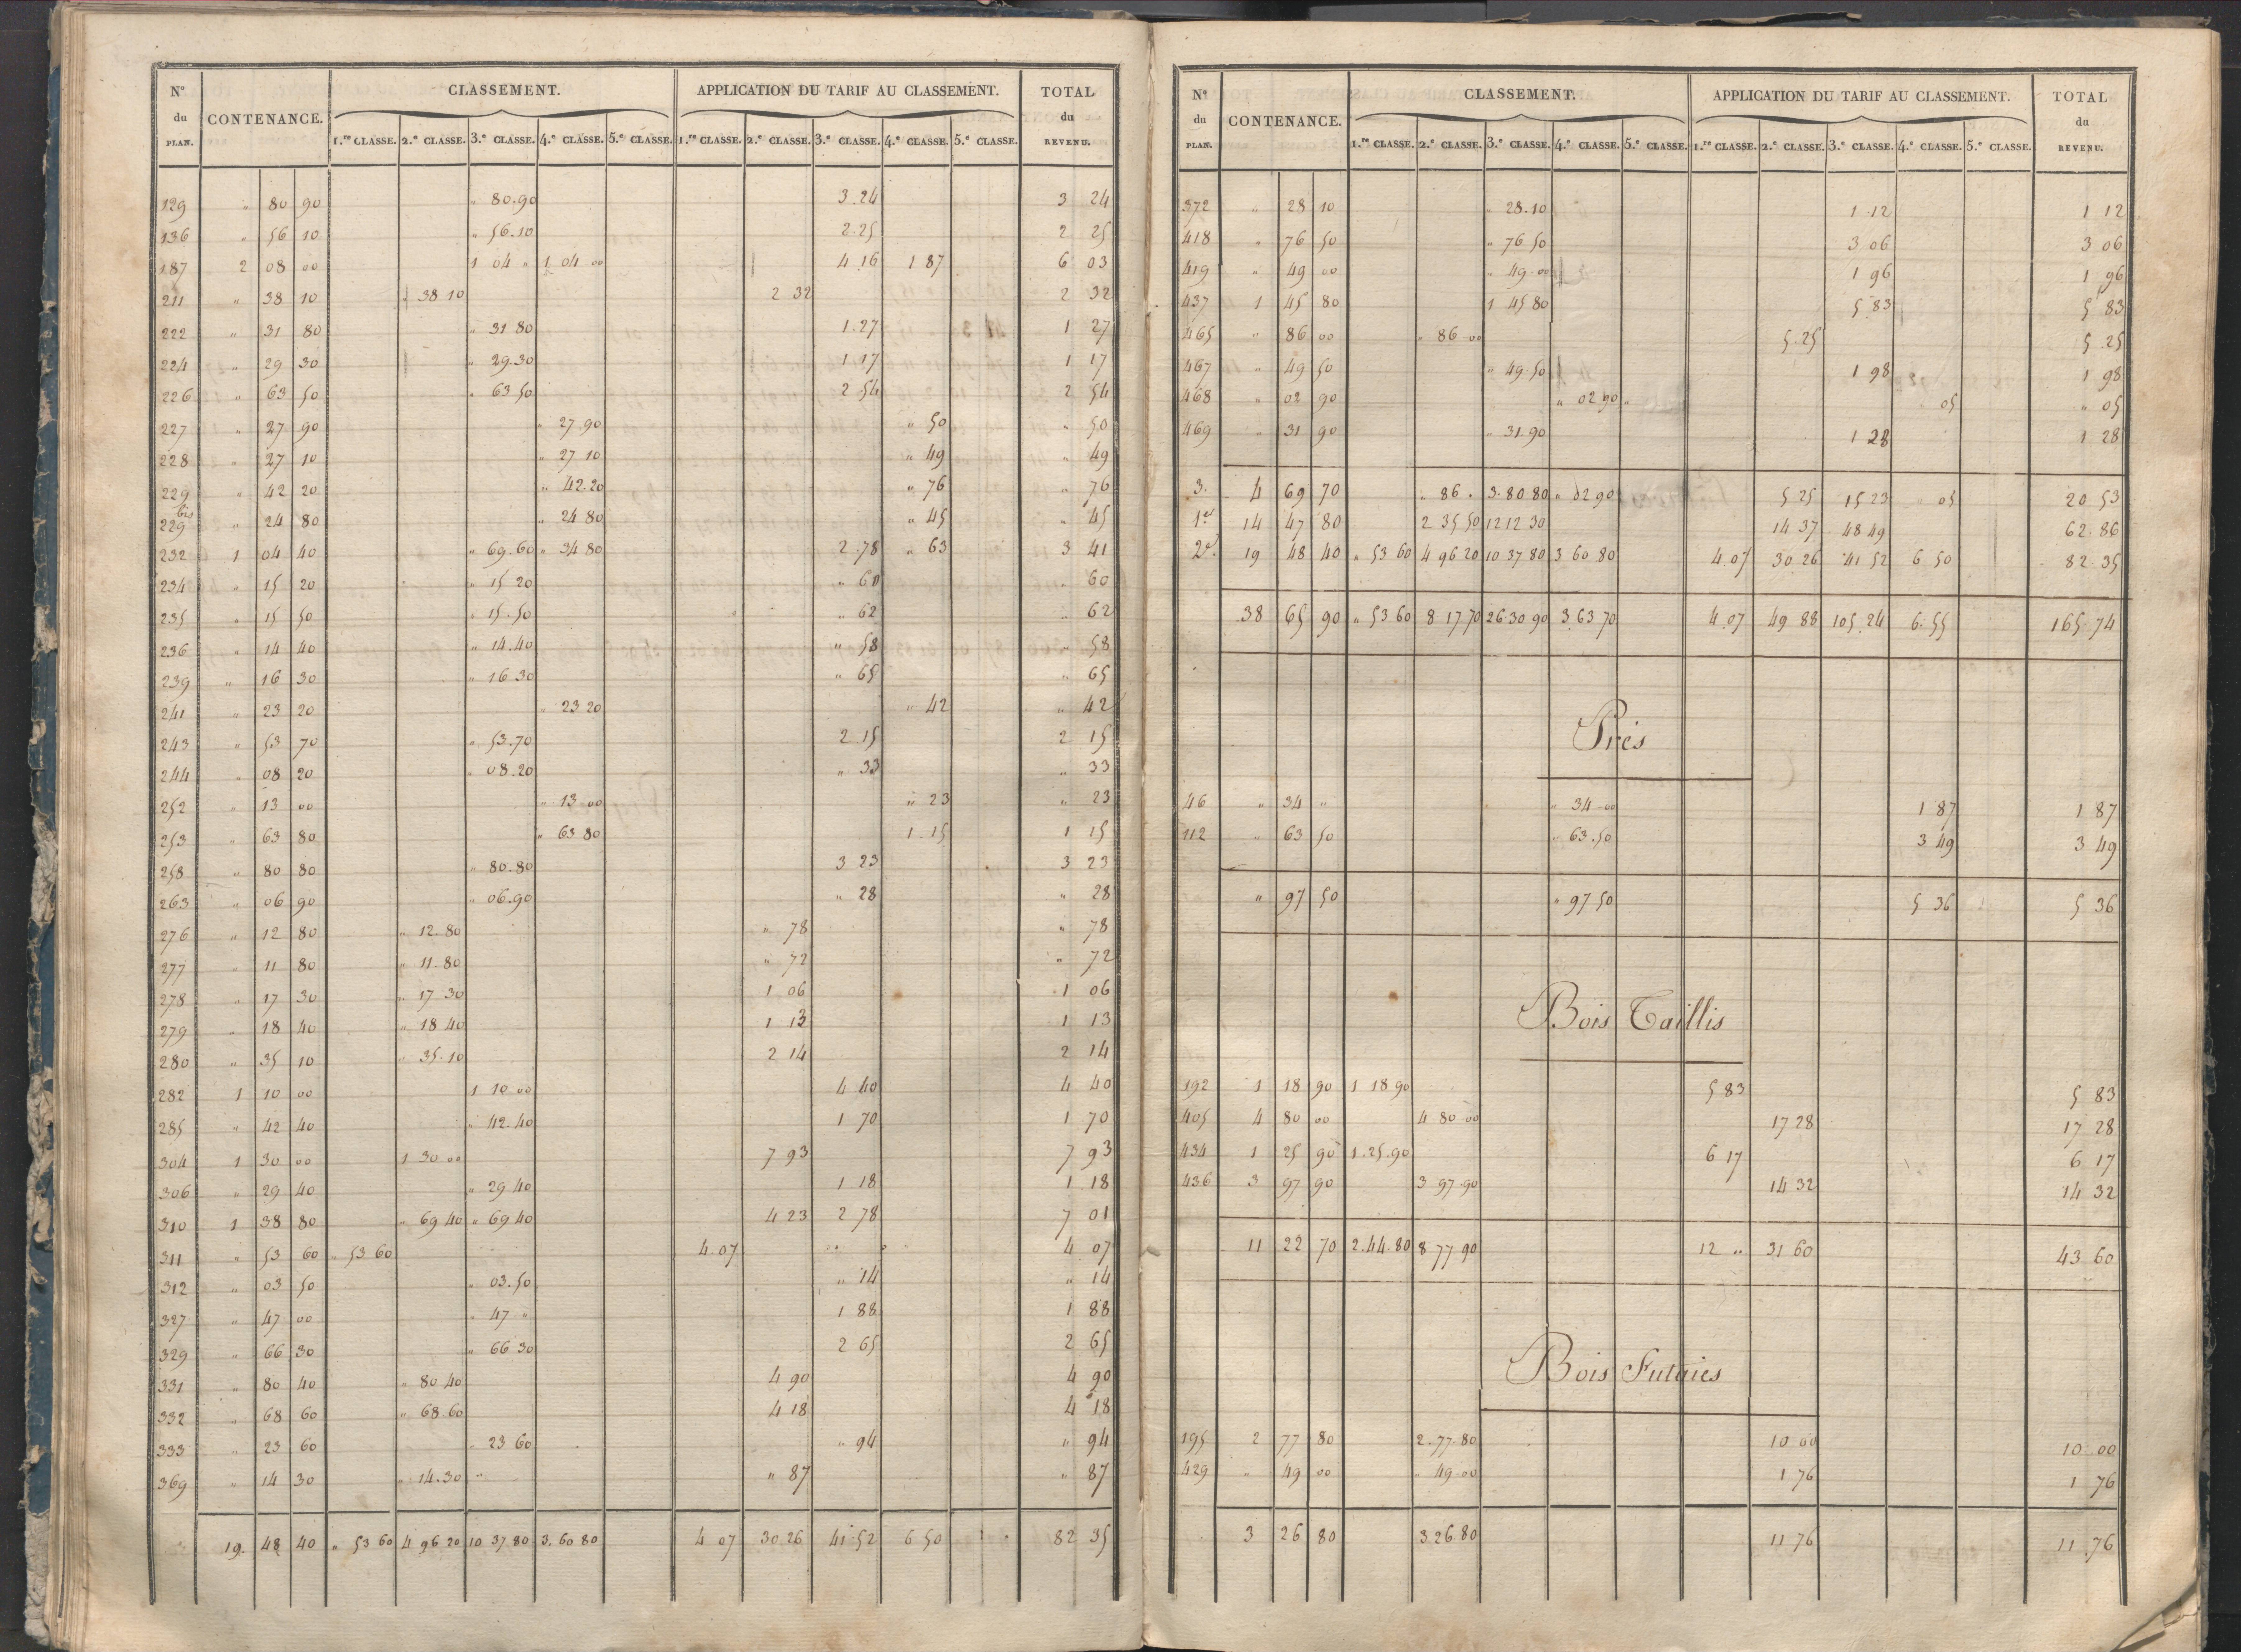 N.º du PLAN. CONTENANCE. CLASSEMENT. APPLICATION DU TARIF AU CLASSEMENT. TOTAL du REVENU.
1.re CLASSE. 2.e CLASSE. 3.e CLASSE. 4.e CLASSE. 5.e CLASSE. 1.re CLASSE. 2.e CLASSE. 3.e CLASSE. 4.e CLASSE. 5.e CLASSE.
129 " 80 90 " 80.90 3.24 3 24
136 " 56 10 " 56.10 2.25 2 25
187 2 08 00 1 04 " 1 04 00 4 16 1 87 6 03
211 " 38 10 " 38 10 2 32 2 32
222 " 31 80 " 31 80 1.27 1 27
224 " 29 30 " 29.30 1 17 1 17
226 " 63 50 " 63 50 2 54 2 54
227 " 27 90 " 27.90 " 50 " 50
228 " 27 10 " 27 10 " 49 " 49
229 " 42 20 " 42.20 " 76 " 76
229 bis " 24 80 " 24 80 " 45 " 45
232 1 04 40 " 69.60 " 34 80 2.78 " 63 3 41
234 " 15 20 " 15 20 " 60 " 60
235 " 15 50 " 15.50 " 62 " 62
236 " 14 40 " 14.40 " 58 " 58
239 " 16 30 " 16.30 " 65 " 65
241 " 23 20 " 23 20 " 42 " 42
243 " 53 70 " 53.70 2 15 2 15
244 " 08 20 " 08.20 " 33 " 33
252 " 13 00 " 13 00 " 23 " 23
253 " 63 80 " 63 80 1.15 1 15
258 " 80 80 " 80.80 3 23 3 23
263 " 06 90 " 06.90 " 28 " 28
276 " 12 80 " 12.80 " 78 " 78
277 " 11 80 " 11.80 " 72 " 72
278 " 17 30 " 17 30 1 06 1 06
279 " 18 40 " 18 40 1 13 1 13
280 " 35 10 " 35.10 2 14 2 14
282 1 10 00 1 10 00 4 40 4 40
285 " 42 40 " 42.40 1 70 1 70
304 1 30 00 1 30 00 7 93 7 93
306 " 29 40 " 29 40 1 18 1 18
310 1 38 80 " 69 40 " 69 40 4 23 2 78 7 01
311 " 53 60 " 53 60 4.07 4 07
312 " 03 50 " 03.50 " 14 " 14
327 " 47 00 " 47 " 1 88 1 88
329 " 66 30 " 66 30 2 65 2 65
331 " 80 40 " 80 40 4 90 4 90
332 " 68 60 " 68.60 4 18 4 18
333 " 23 60 " 23 60 " 94 " 94
369 " 14 30 " 14.30 " " 87 " 87
19. 48 40 " 53 60 4 96 20 10 37 80 3. 60 80 4 07 30 26 41.52 6 50 82 35
N.º du PLAN. CONTENANCE. CLASSEMENT. APPLICATION DU TARIF AU CLASSEMENT. TOTAL du REVENU.
1.re CLASSE. 2.e CLASSE. 3.e CLASSE. 4.e CLASSE. 5.e CLASSE. 1.re CLASSE. 2.e CLASSE. 3.e CLASSE. 4.e CLASSE. 5.e CLASSE.
372 " 28 10 " 28.10 1 12 1 12
418 " 76 50 " 76 50 3 06 3 06
419 " 49 00 " 49.00 1 96 1 96
437 1 45 80 1 45 80 5.83 5 83
465 " 86 00 " 86 00 5.25 5 25
467 " 49 50 " 49.50 1 98 1 98
468 " 02 90 " 02 90 " 05 " 05
469 " 31 90 " 31.90 1 28 1 28
3. 4 69 70 " 86 . 3.80 80 " 02 90 5 25 15 23 " 05 20 53
1er 14 47 80 2 35 50 12 12 30 14 37 48 49 62.86
2d. 19 48 40 " 53 60 4 96 20 10 37 80 3 60 80 4.07 30.26 41 52 6 50 82.35
38 65 90 " 53 60 8 17 70 26.30 90 3.63 70 4.07 49 88 105.24 6.55 165.74
Prés
46 " 34 " " 34 00 1 87 1 87
112 " 63 50 " 63.50 3 49 3 49
" 97 50 " 97 50 5 36 5 36
Bois Taillis
192 1 18 90 1 18 90 5 83 5 83
405 4 80 00 4 80 00 17 28 17 28
434 1 25 90 1.25.90 6 17 6 17
436 3 97 90 3 97.90 14 32 14 32
11 22 70 2.44.80 8 77 90 12 " 31 60 43 60
Bois Futaies
195 2 77 80 2.77.80 10 00 10.00
429 " 49 00 " 49.00 1 76 1 76
3 26 80 3 26.80 11 76 11.76